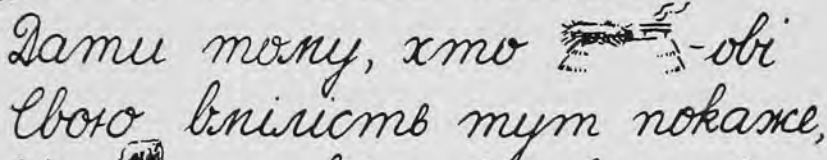 Дати тому, хто -ові
Свою вмілість тут покаже,